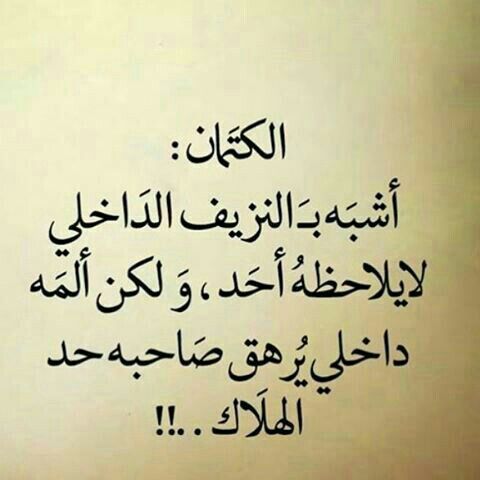 الكتَمان :
أشبَه بـَالنزيف الدَاخلي
لايلاحظهُ أحَد ، وَ لكن ألمَه
داخلي يُرهق صَاحبه حد
الهلَاك . . !!